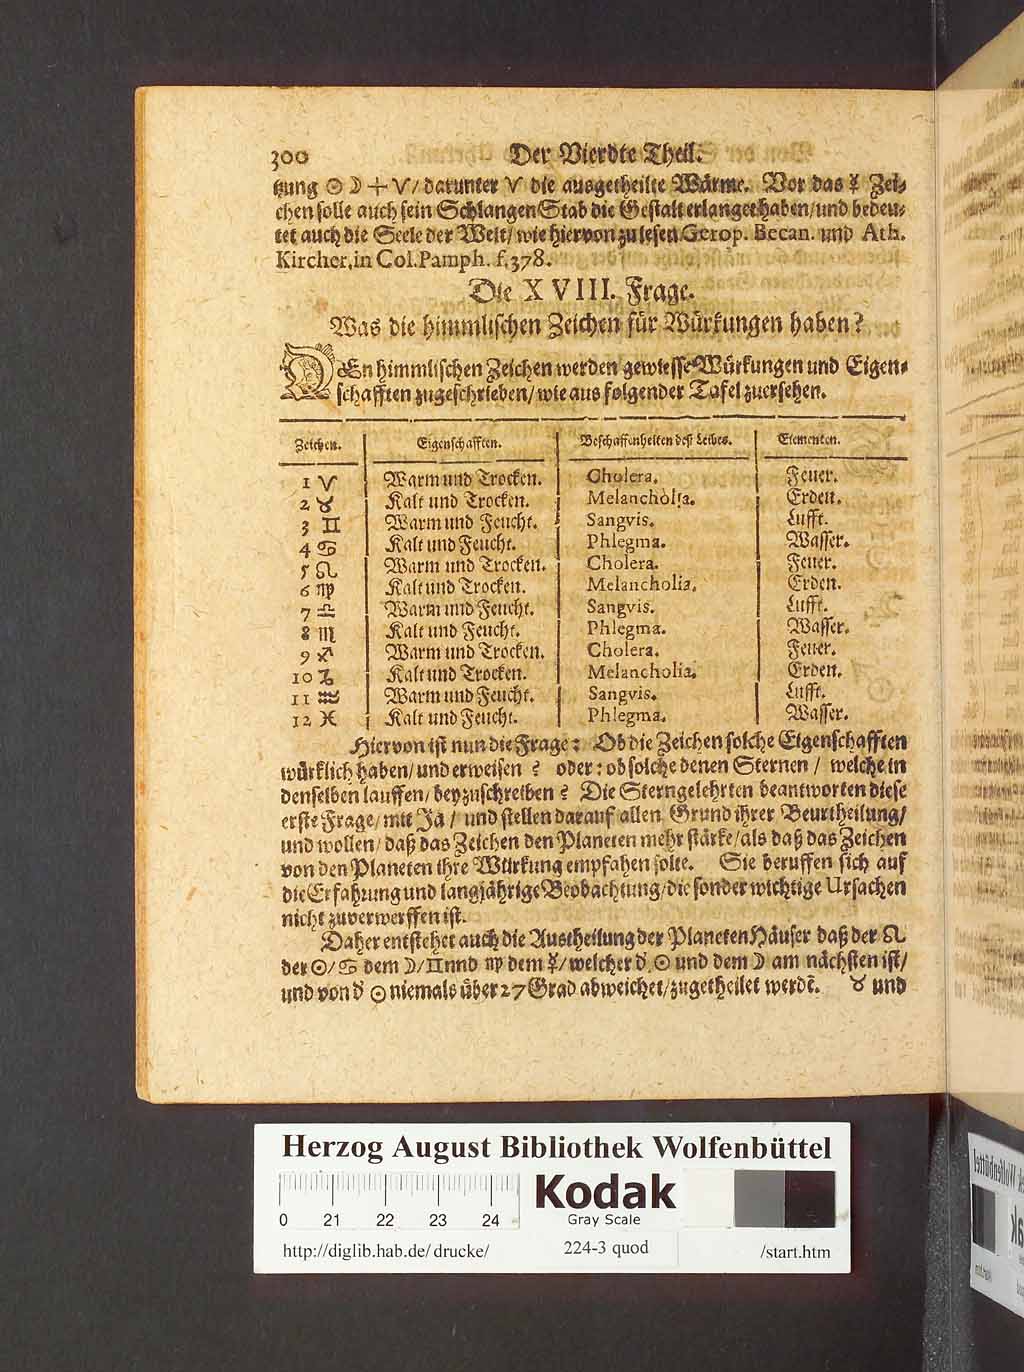 300 Der Vierdte Theil.
tzung ☉☽+♈/ darunter ♈ die ausgetheilte Wärme. Vor das ☿ Zei-
chen solle auch sein Schlangen Stab die Gestalt erlanget haben/ und bedeu-
tet auch die Seele der Welt/ wie hiervon zu lesen Gerop. Becan. und Ath.
Kircher, in Col. Pamph. f. 378.
Die XVIII. Frage.
Was die himmlischen Zeichen für Würkungen haben?
DEn himmlischen Zeichen werden gewiesse Würkungen und Eigen-
schafften zugeschrieben/ wie aus folgender Tafel zuersehen.
Zeichen. Eigenschafften. Beschaffenheiten deß Leibes. Elementen.
1 ♈ Warm und Trocken. Cholera. Feuer.
2 ♉ Kalt und Trocken. Melancholia. Erden.
3 ♊ Warm und Feucht. Sangvis. Lufft.
4 ♋ Kalt und Feucht. Phlegma. Wasser.
5 ♌ Warm und Trocken. Cholera. Feuer.
6 ♍ Kalt und Trocken. Melancholia. Erden.
7 ♎ Warm und Feucht. Sangvis. Lufft.
8 ♏ Kalt und Feucht. Phlegma. Wasser.
9 ♐ Warm und Trocken. Cholera. Feuer.
10 ♑ Kalt und Trocken. Melancholia. Erden.
11 ♒ Warm und Feucht. Sangvis. Lufft.
12 ♓ Kalt und Feucht. Phlegma. Wasser.
Hiervon ist nun die Frage: Ob die Zeichen solche Eigenschafften
würklich haben/ und erweisen? oder: ob solche denen Sternen/ welche in
denselben lauffen/ beyzuschreiben? Die Sterngelehrten beantworten diese
erste Frage/ mit Ja/ und stellen darauf allen Grund ihrer Beurtheilung/
und wollen/ daß das Zeichen den Planeten mehr stärke/ als daß das Zeichen
von den Planeten ihre Würkung empfahen solte. Sie beruffen sich auf
die Erfahrung und langjährige Beobachtung/ die sonder wichtige Ursachen
nicht zuverwerffen ist.
Daher entstehet auch die Austheilung der Planeten Häuser daß der ♌
der ☉/ ♋ dem ☽/ ♊ nnd ♍ dem ☿/ welcher d' ☉ und dem ☽ am nächsten ist/
und von d' ☉ niemals über 27 Grad abweichet/ zugetheilet werdē. ♉ und
Herzog August Bibliothek Wolfenbüttel
0 21 22 23 24
Kodak
Gray Scale
http://diglib.hab.de/drucke/ 224-3 quod /start.htm